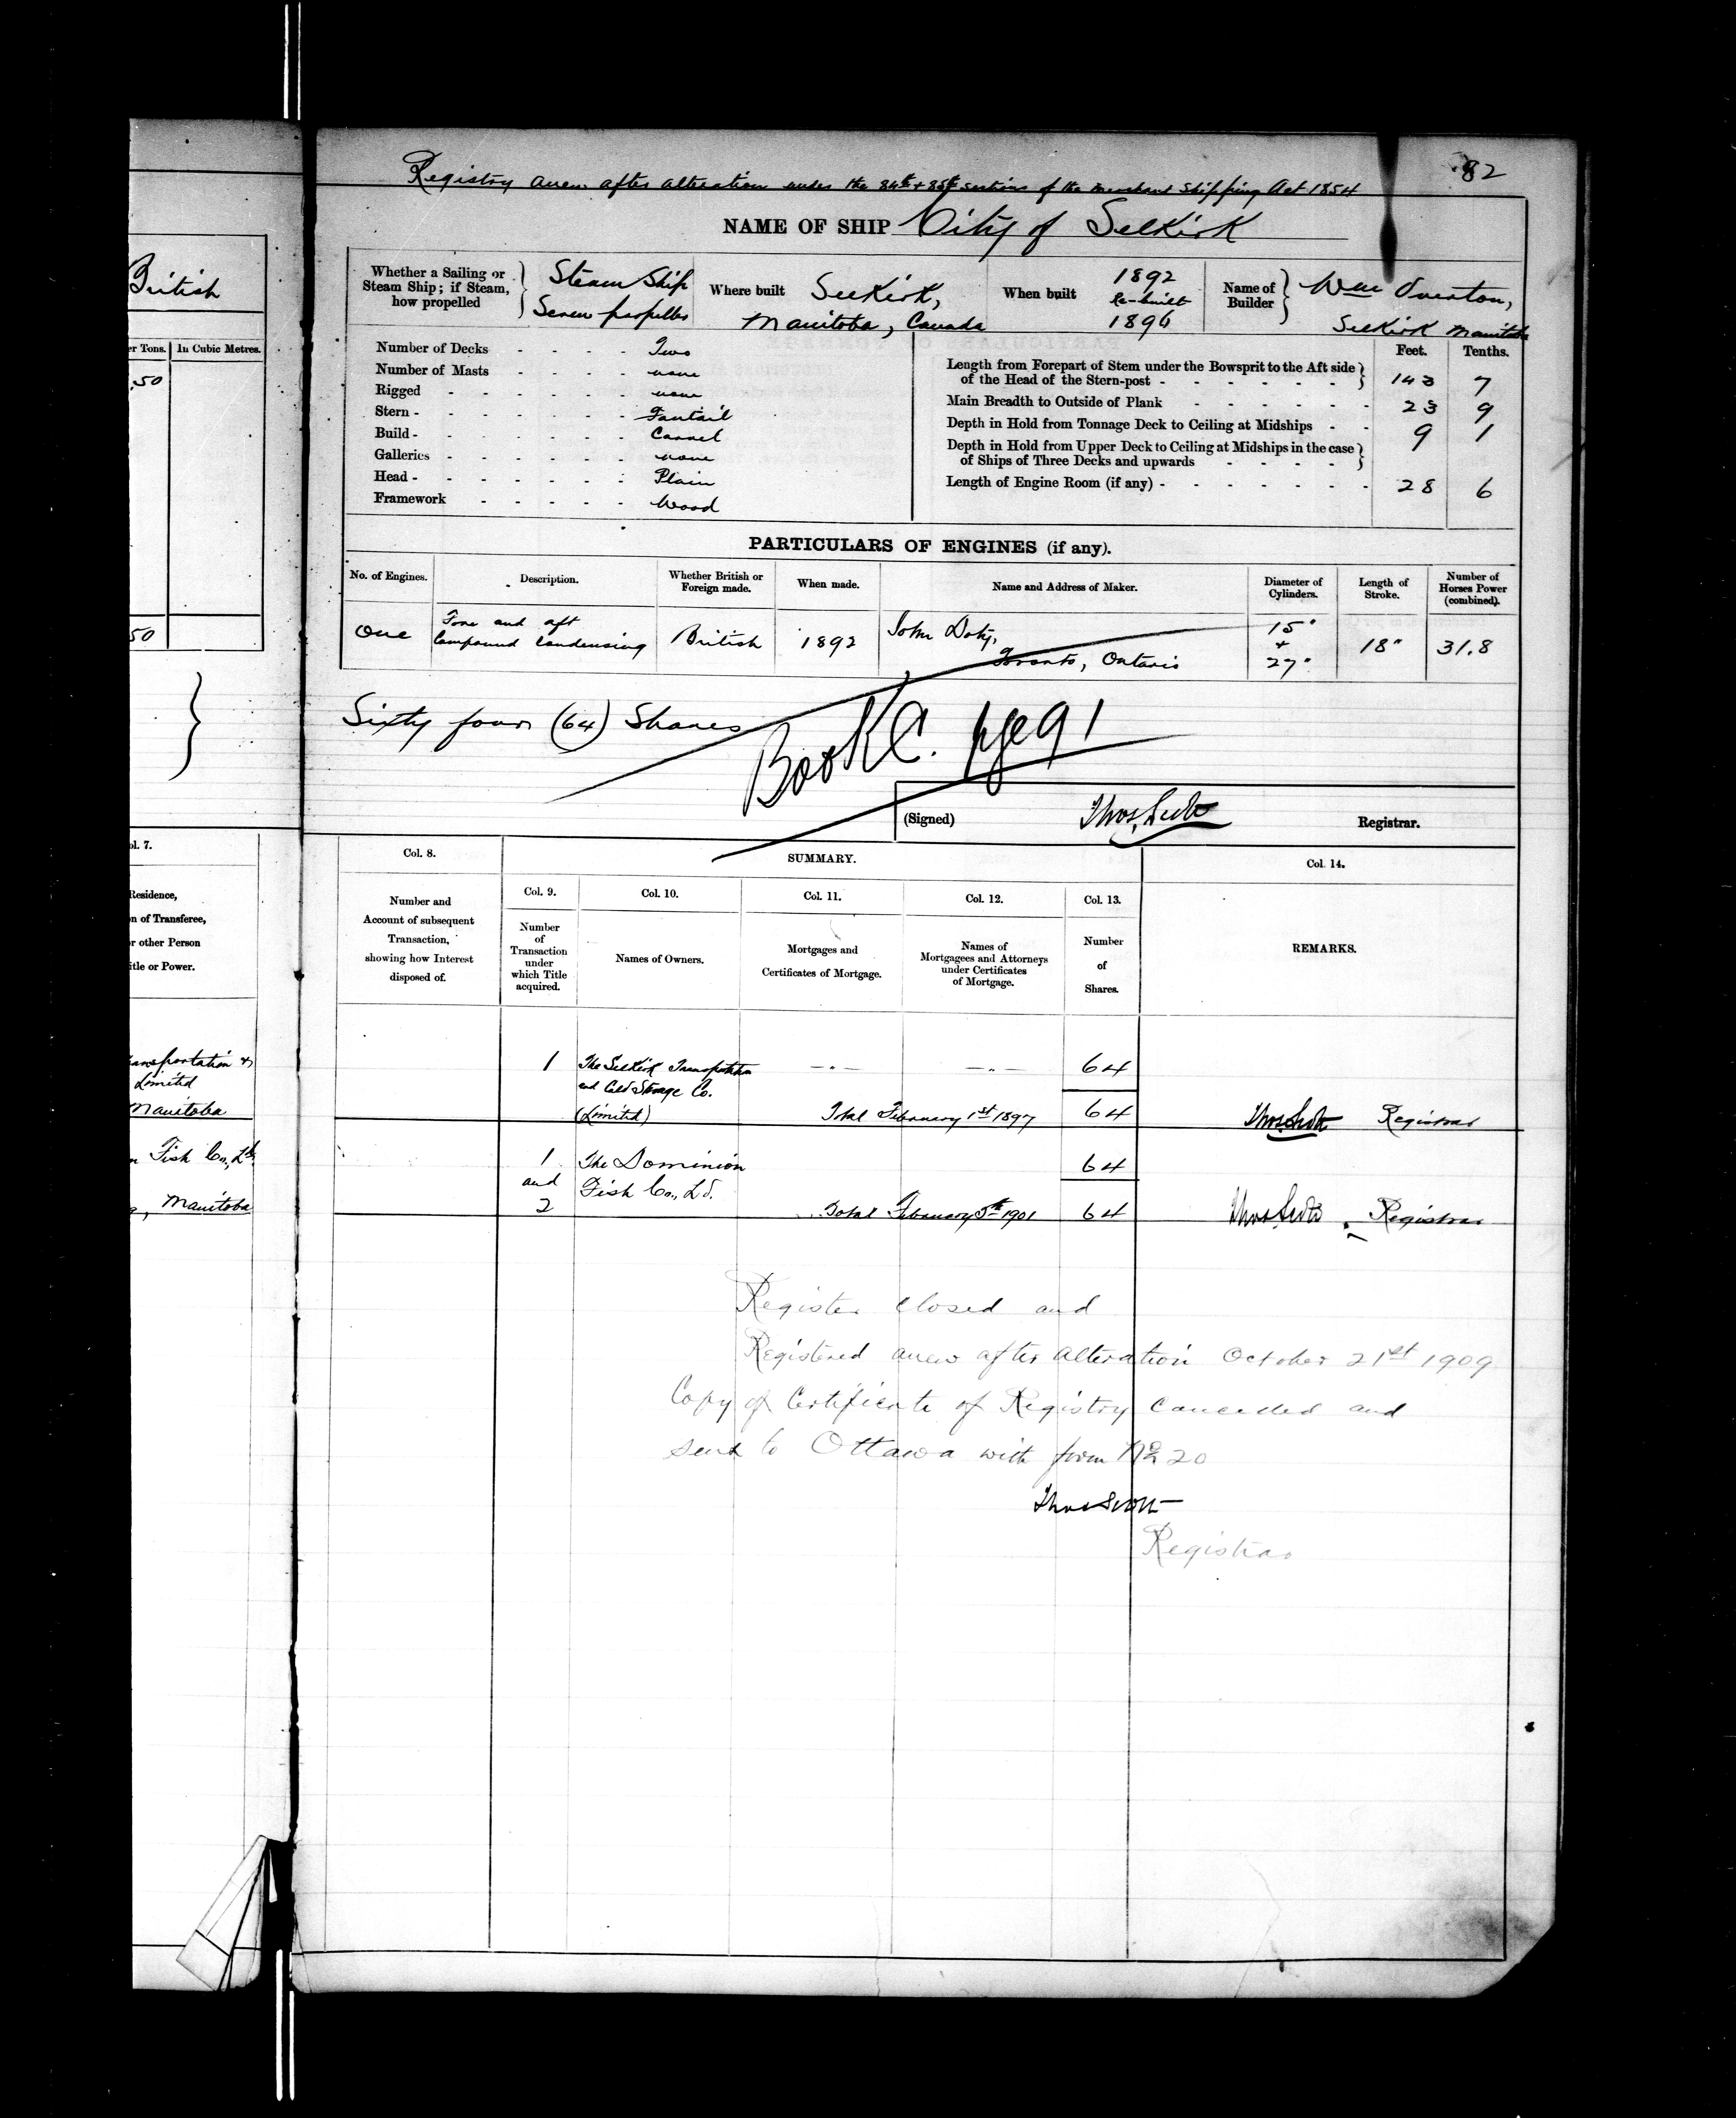 82
Registry anew after alteration under the 84th & 85th sections of the Merchant Shipping Act 1854
NAME OF SHIP City of Selkirk
Whether a Sailing or Steam Ship; if Steam, how propelled } Steam Ship Screw propeller
Where built Selkirk, Manitoba, Canada
When built 1892 Re-built 1896
Name of Builder } Wm Overton, Selkirk Manitoba
Number of Decks - - - - Two
Number of Masts - - - - none
Rigged - - - - - - none
Stern - - - - - - - Fantail
Build - - - - - - - Carvel
Galleries - - - - - - none
Head - - - - - - - Plain
Framework - - - - - Wood
Feet. Tenths.
Length from Forepart of Stem under the Bowsprit to the Aft side
of the Head of the Stern-post - - - - - - } 143 7
Main Breadth to Outside of Plank - - - - - - 23 9
Depth in Hold from Tonnage Deck to Ceiling at Midships - - 9 1
Depth in Hold from Upper Deck to Ceiling at Midships in the case
of Ships of Three Decks and upwards - - - - }
Length of Engine Room (if any) - - - - - - - 28 6
PARTICULARS OF ENGINES (if any).
No. of Engines. Description. Whether British or Foreign made. When made. Name and Address of Maker. Diameter of Cylinders. Length of Stroke. Number of Horses Power (combined).
One Fore and aft Compound Condensing British 1892 John Doty, Toronto, Ontario 15" + 27" 18" 31.8
Sixty four (64) Shares
Book C. pge 91
(Signed) Thos Scott Registrar.
Col. 8. SUMMARY. Col. 14.
Col. 9. Col. 10. Col. 11. Col. 12. Col. 13.
Number and Account of subsequent Transaction, showing how Interest disposed of.
Number of Transaction under which Title acquired.
Names of Owners.
Mortgages and Certificates of Mortgage.
Names of Mortgagees and Attorneys under Certificates of Mortgage.
Number of Shares.
REMARKS.
1 The Selkirk Transportation —"— —"— 64
and Cold Storage Co.
(Limited) Total February 1st 1897 64 Thos Scott Registrar
1 The Dominion 64
and Fish Co., Ld.
2 Total February 5th 1901 64 Thos Scott, Registrar
Register closed and
Registered anew after alteration October 21st 1909
Copy of Certificate of Registry Cancelled and
sent to Ottawa with form No 20
Thos Scott
Registrar
British
er Tons. In Cubic Metres.
.50
50
ol. 7.
Residence,
n of Transferee,
r other Person
itle or Power.
ransportation &
Limited
Manitoba
n Fish Co., Ld.
, Manitoba